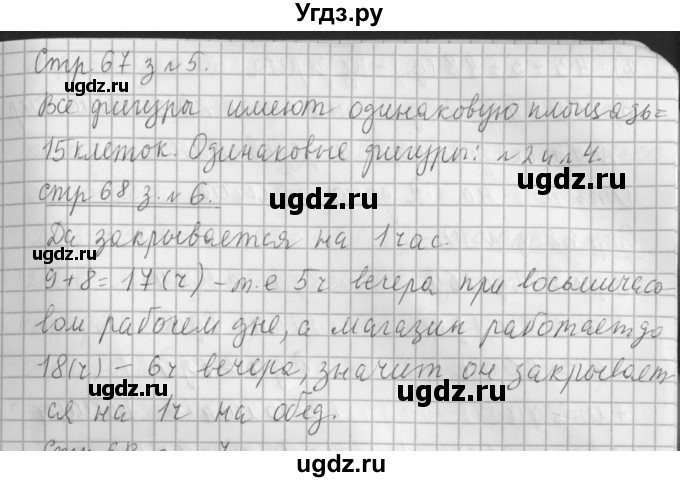 Угдз.ру
Стр 67 з №5.
Все фигуры имеют одинаковую площадь=
15 клеток. Одинаковые фигуры: №2 и №4.
стр 68 з. №6.
Да закрывается на 1 час.
9+8=17(ч) - т.е 5ч вечера при восьмичасо-
вом рабочем дне, а магазин работает до
18(ч) - 6ч вечера, значит он закрывает-
ся на 1ч на обед.
ugdz.ru
ugdz.ru
ugdz.ru
ugdz.ru
ugdz.ru
ugdz.ru
ugdz.ru
ugdz.ru
ugdz.ru
ugdz.ru
ugdz.ru